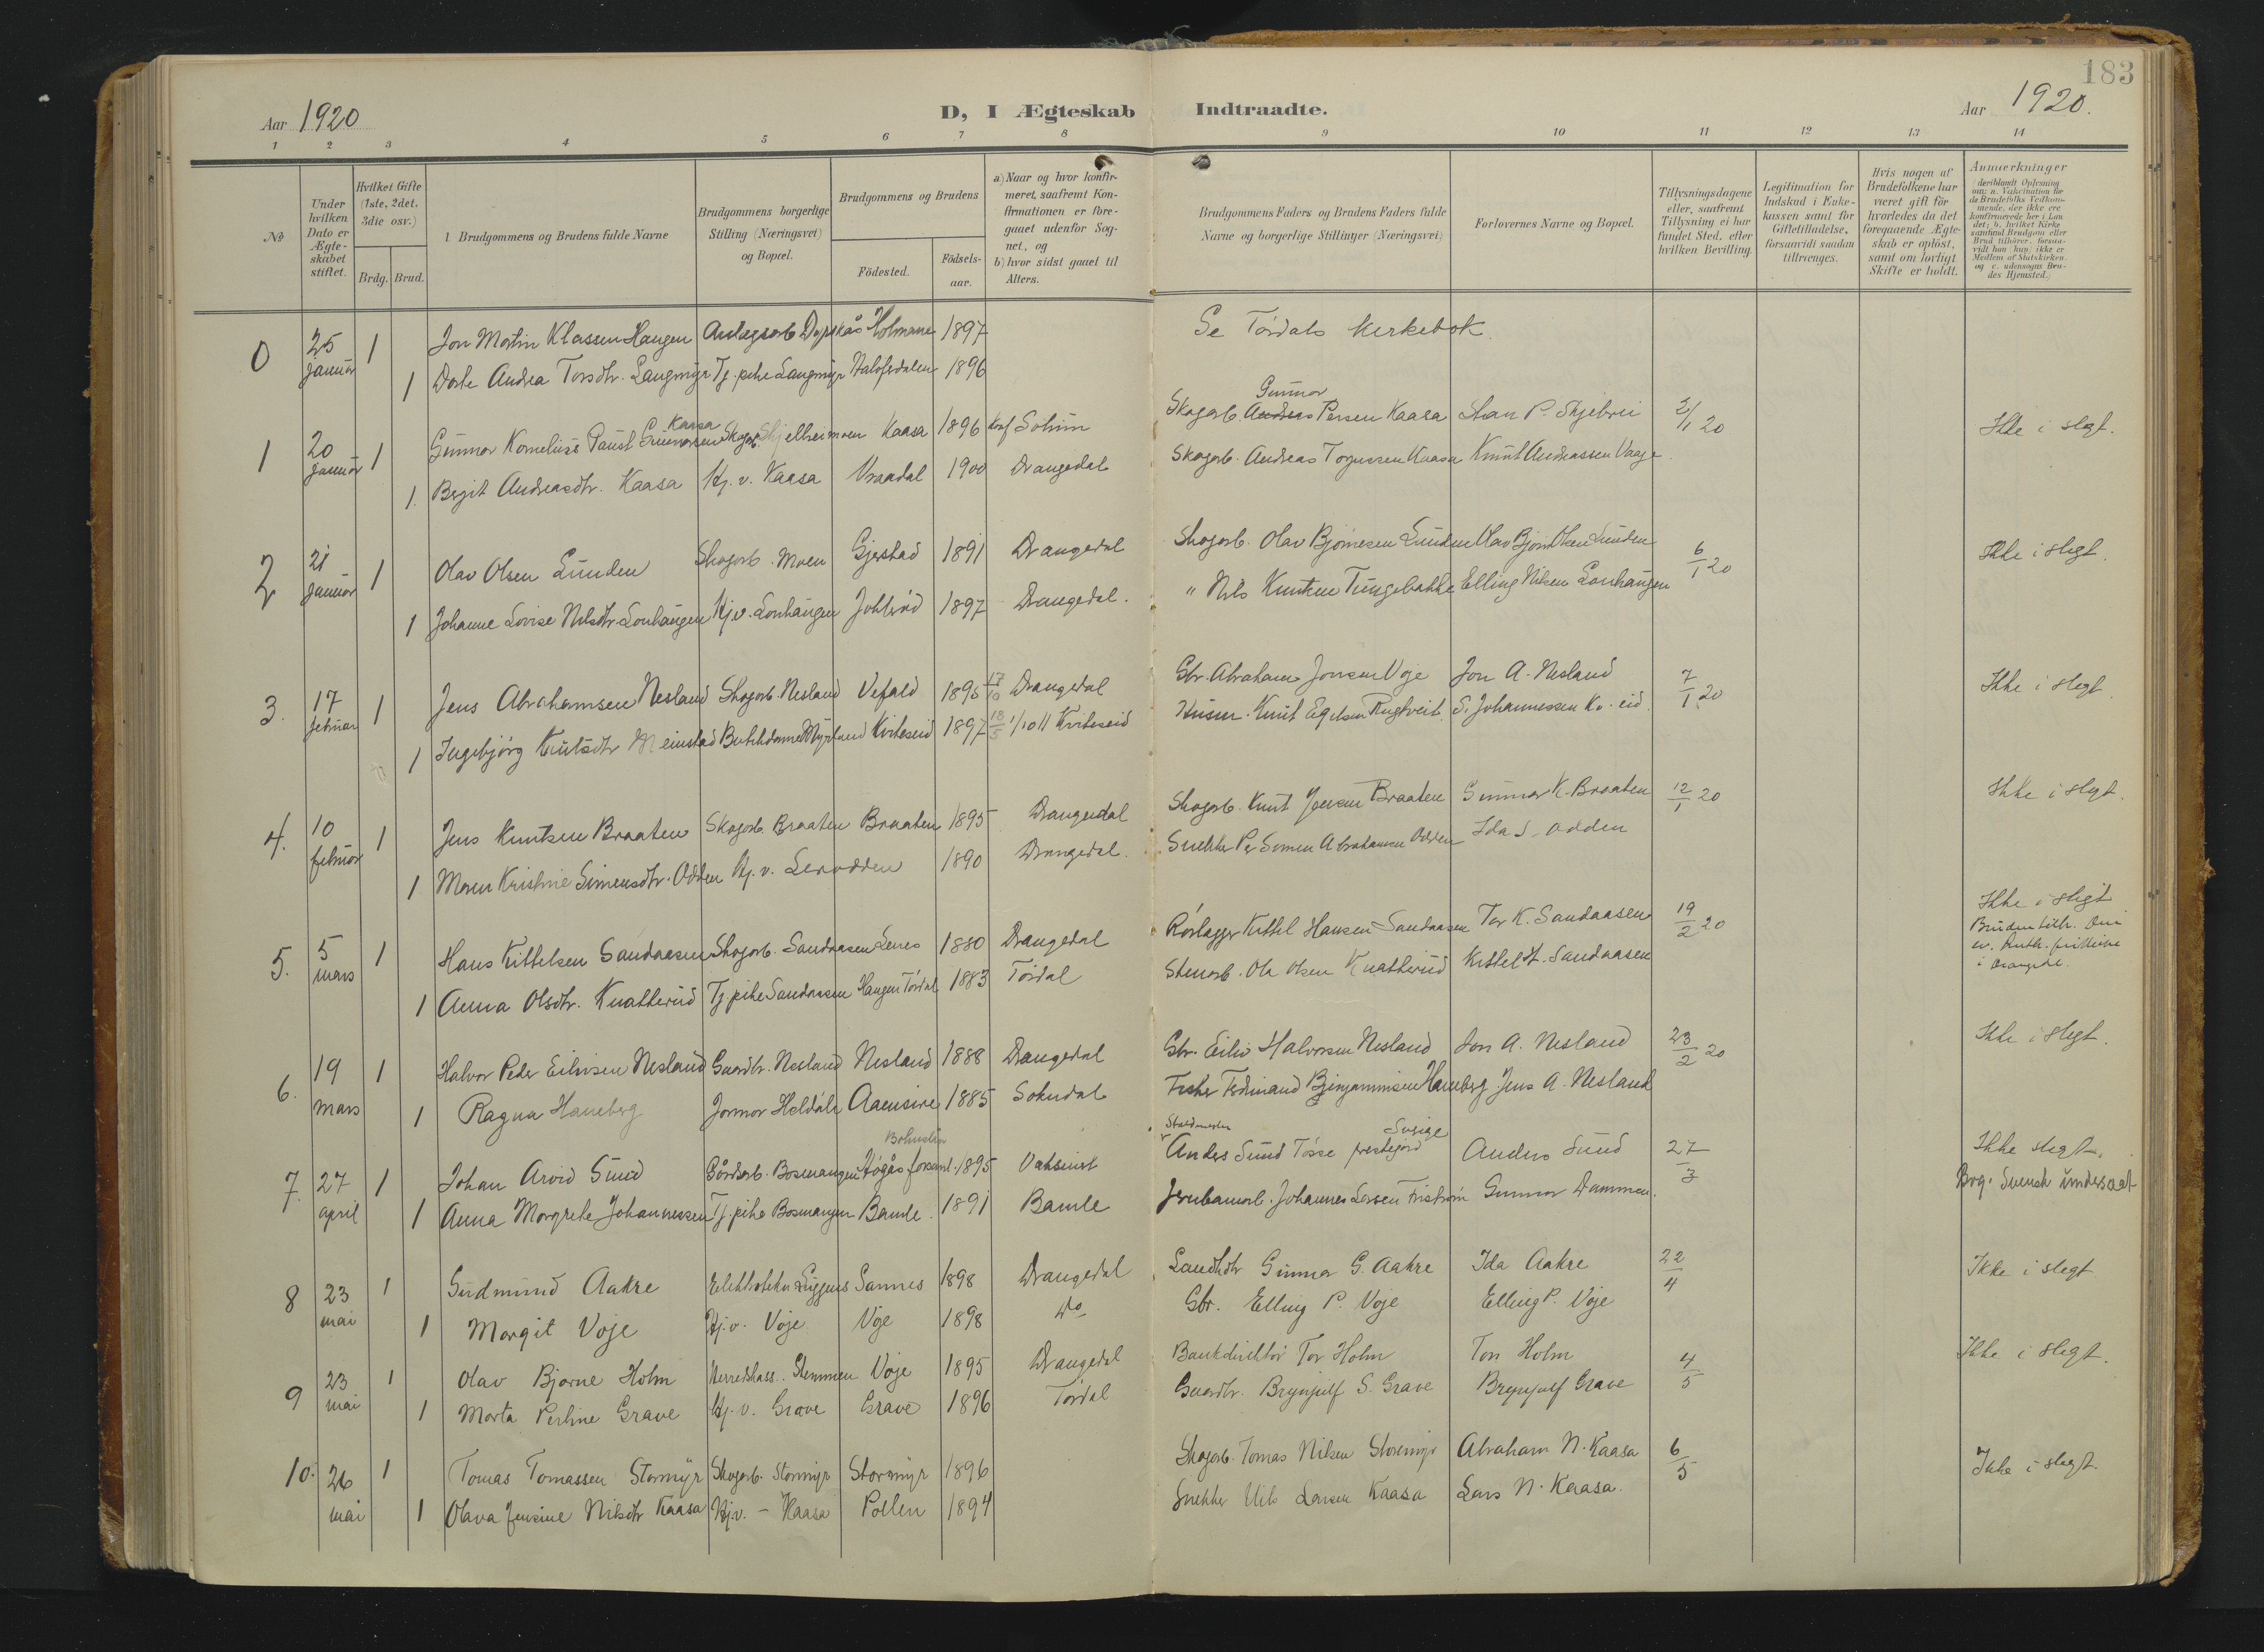 183
Aar 1920
D, I Ægteskab Indtraadte.
Aar 1920.
1 2 3 4 5 6 7 8 9 10 11 12 13 14
No
Under hvilken Dato er Ægte-skabet stiftet.
Hvilket Gifte (1ste, 2det, 3die osv.)
Brdg. Brud.
1 Brudgommens og Brudens fulde Navne
Brudgommens borgerlige Stilling (Næringsvei) og Bopæl.
Brudgommens og Brudens
Födested.
Födsels-aar.
a) Naar og hvor konfir-meret, saafremt Kon-firmationen er fore-gaaet udenfor Sog-net, og
b) hvor sidst gaaet til Alters.
Brudgommens Faders og Brudens Faders fulde Navne og borgerlige Stillinger (Næringsvei)
Forlovernes Navne og Bopæl.
Tillysningsdagene eller, saafremt Tillysning ei har fundet Sted, efter hvilken Bevilling.
Legitimation for Indskud i Enke-kassen samt for Giftetilladelse, forsaavidt saadan tiltrænges.
Hvis nogen af Brudefolkene har været gift för hvorledes da det foregaaende Ægte-skab er oplöst, samt om lovligt Skifte er holdt.
Anmærkninger
(deriblandt Oplysning om: a. Vakcination for de Brudefolks Vedkom-mende, der ikke ere konfirmerede her i Lan-det; b. hvilket Kirke-samfund Brudgom eller Brud tilhörer, forsaa-vidt han (hun) ikke er Medlem af Statskirken og c. udensogns Bru-des Hjemsted.)
0 25 januar 1 Jon Martin Klassen Haugen Anlægsarb. Holmane 1897 Se Tórdals kirkebok
1 Dorte Andrea Torsdtr. Langmyr Tj. pike Langmyr 1896
1 20 januar 1 Gunnar Kornelius Paust Gunnarsen Kaasa Skogarb. Skjelheimoen Kaasa 1896 Konf Solum Skogarb. Gunnar Persen Kaasa P. Skjebrei 2/1 20 Ikke i slegt.
1. Birgit Andreasdtr. Kaasa Hj. v. Kaasa Vraadal 1900 Drangedal Skogarb. Andreas Torjussen Kaasa Knut Andreassen Vaaje
2 21 januar 1 Olav Olsen Lunden Skogarb. Moen Gjerstad 1891 Drangedal Skogarb. Olav Bjørnesen Lunden Olav Bjørn Olsen Lunden 6/1 20 Ikke i slegt.
1 Johanne Lovise Nilsdtr. Lonhaugen Hj.v. Lonhaugen 1897 Drangedal. " Nils Knutsen Tungebakke Elling Nilsen Lonhaugen
3. 17 februar 1 Jens Abrahamsen Nesland Skogarb. Nesland Vefald 1895 17/10 Drangedal Gbr. Abraham Jonsen Voje Jon A. Nesland 7/1 20 Ikke i slegt.
1 Ingebjörg Knutsdtr Meinstad Butikdame Kviteseid 1897 18/5 1/10 11 Kviteseid Husm. Knut Egilsen S. Johannessen Kv.eid
4. 10 februar 1 Jens Knutsen Braaten Skogarb. Braaten Braaten 1895 Drangedal Skogarb. Knut Jensen Braaten Gunnar K. Braaten 12/1 20 Ikke i slegt.
1 Maren Kristine Simensdtr. Odden Hj. v. 1890 Drangedal. Snekker Per Simen Abrahamsen Odden Ida S. Odden
5. 5 mars 1 Hans Kittelsen Sandaasen Skogarb. Sandaasen 1880 Drangedal Rörlægger Kittel Hansen Sandaasen Tor K. Sandaasen 19/2 20 Ikke i slegt
Bruden tilh. Den ev. luth. frikirke i Drangedal.
1 Anna Olsdtr. Knatterud Tj. pike Sandaasen Haugen Tórdal 1883 Tórdal Stenarb. Ola Olsen Knatterud Kittel H. Sandaasen
6. 19 mars 1 Halvor Peder Eilivsen Nesland Gaardbr. Nesland Nesland 1888 Drangedal Gbr. Eiliv Halvorsen Nesland Jon A. Nesland 23/2 20 Ikke i slegt.
1 Ragna Haneberg Jormor Heldal 1885 Sokndal Fisker Ferdinand Haneberg Jens A. Nesland
7. 27 april 1 Johan Arvid Sund Gårdsarb. Bosmangen Bohuslän 1895 Anders Sund Tösse prestegjeld Sverige Anders Sund 27/3 Ikke slegt.
Brg. svensk undersaat
1 Anna Margrethe Johannessen Tj. pike Bosmangen Bamle. 1891 Bamle Johannes Larsen Gunnar Dammen.
8 23 mai 1 Gudmund Aakre Elektrotekn. Sannes 1898 Drangedal Landhdlr Gunnar G. Aakre Ida Aakre 22/4 Ikke i slegt
1 Margit Voje Hj.v. Voje Voje 1898 Do Gbr. Elling P. Voje Elling P. Voje
9 23 mai 1 Olav Bjarne Holm Herredskass. Stemmen Voje 1895 Drangedal Bankdirektör Tor Holm Tor Holm 4/5 Ikke i slegt.
1 Marta Perline Grave Hj.v. Grave Grave 1896 Tórdal Gaardbr. Brynjulf S. Grave Brynjulf Grave
10. 26 mai 1 Tomas Tomassen Stormyr Skogarb. Stormyr Stormyr 1896 Skogarb. Tomas Nilsen Stormyr Abraham N. Kaasa 6/5 Ikke i slegt.
1 Olava Jensine Nilsdtr Kaasa Hj.v. - Kaasa Pollen 1894 Snekker Nils Larsen Kaasa Lars N. Kaasa.